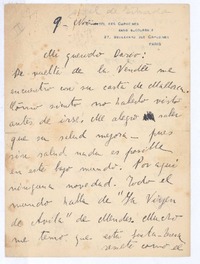 9 -
27, BOULEVARD DES CAPUCINES
PARIS
Mi querido Darío:
De vuelta de la Vendée me
encuentro con su carta de Mallorca.
Cómo siento no haberlo visto
antes de irse. Me alegro saber
que su salud mejora — pues
sin salud nada es posible
en este bajo mundo. Por aquí
ninguna novedad. Todo el
mundo habla de "La Virgen
de Avila" de Mendes. Mucho
me temo que esta
como el